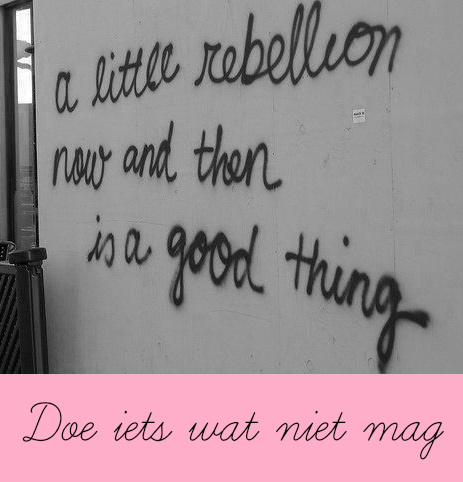 a little rebellion
now and then
is a good thing
Doe iets wat niet mag